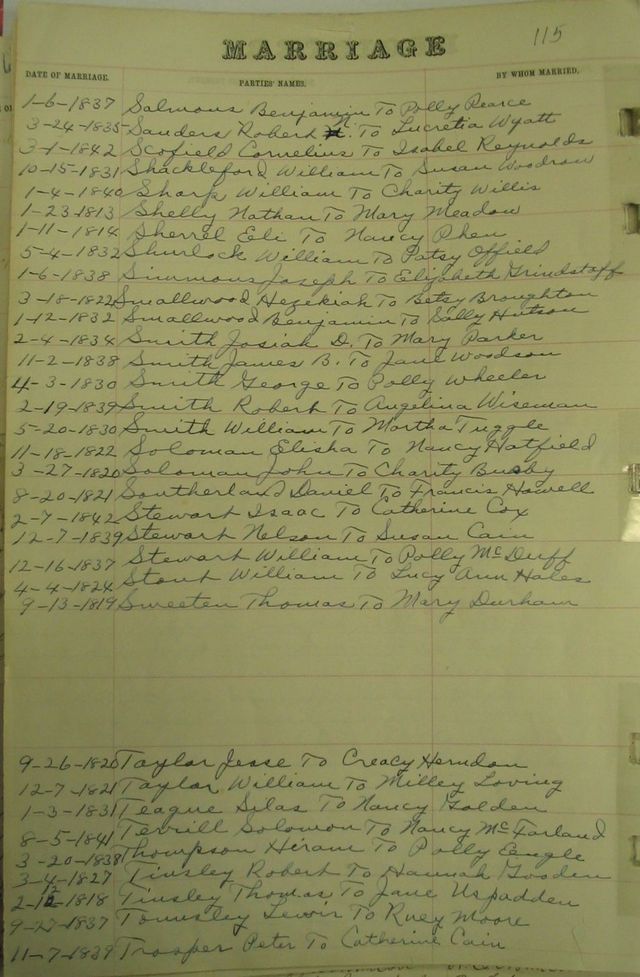 115
MARRIAGE
DATE OF MARRIAGE. PARTIES' NAMES. BY WHOM MARRIED.
1-6-1837 Salmons Benjamin To Polly Pearce
3-24-1835 Sanders Robert To Lucretia Wyatt
3-1-1842 Scofield Cornelius To Isabel Reynolds
10-15-1831 Shackleford William To Susan Woodrow
1-4-1840 Sharp William To Charity Willis
1-23-1813 Shelly Nathan To Mary Meadow
1-11-1814 Sherrel Eli To Nancy Rhen
5-4-1832 Shurlock William To Patsy Offield
1-6-1838 Simmons Joseph To Elizabeth Grindstaff
3-18-1822 Smallwood Hezekiah To Betsy Broughton
1-12-1832 Smallwood Benjamin To Sally Hutson
2-4-1834 Smith Josiah D. To Mary Parker
11-2-1838 Smith James B. To Jane Woodson
4-3-1830 Smith George To Polly Wheeler
2-19-1839 Smith Robert To Angelina Wiseman
5-20-1830 Smith William To Martha Tuggle
11-18-1822 Soloman Elisha To Nancy Hatfield
3-27-1820 Soloman John To Charity Busby
8-20-1821 Southerland Daniel To Francis Howell
2-7-1842 Stewart Isaac To Catherine Cox
12-7-1839 Stewart Nelson To Susan Cain
12-16-1837 Stewart William To Polly McDuff
4-4-1824 Stout William To Lucy Ann Hales
9-13-1819 Sweeten Thomas To Mary Durham
9-26-1820 Taylor Jesse To Creacy Herndon
12-7-1821 Taylor William To Milley Loving
1-3-1831 Teague Silas To Nancy Golden
8-5-1841 Terrill Solomon To Nancy McFarland
3-20-1838 Thompson Hiram To Polly Engle
3-4-1827 Tinsley Robert To Hannah Gooden
2-12-1818 Tinsley Thomas To Jane Uspadden
9-27-1837 Townsley To Ruey Moore
11-7-1839 Trosper Peter To Catherine Cain